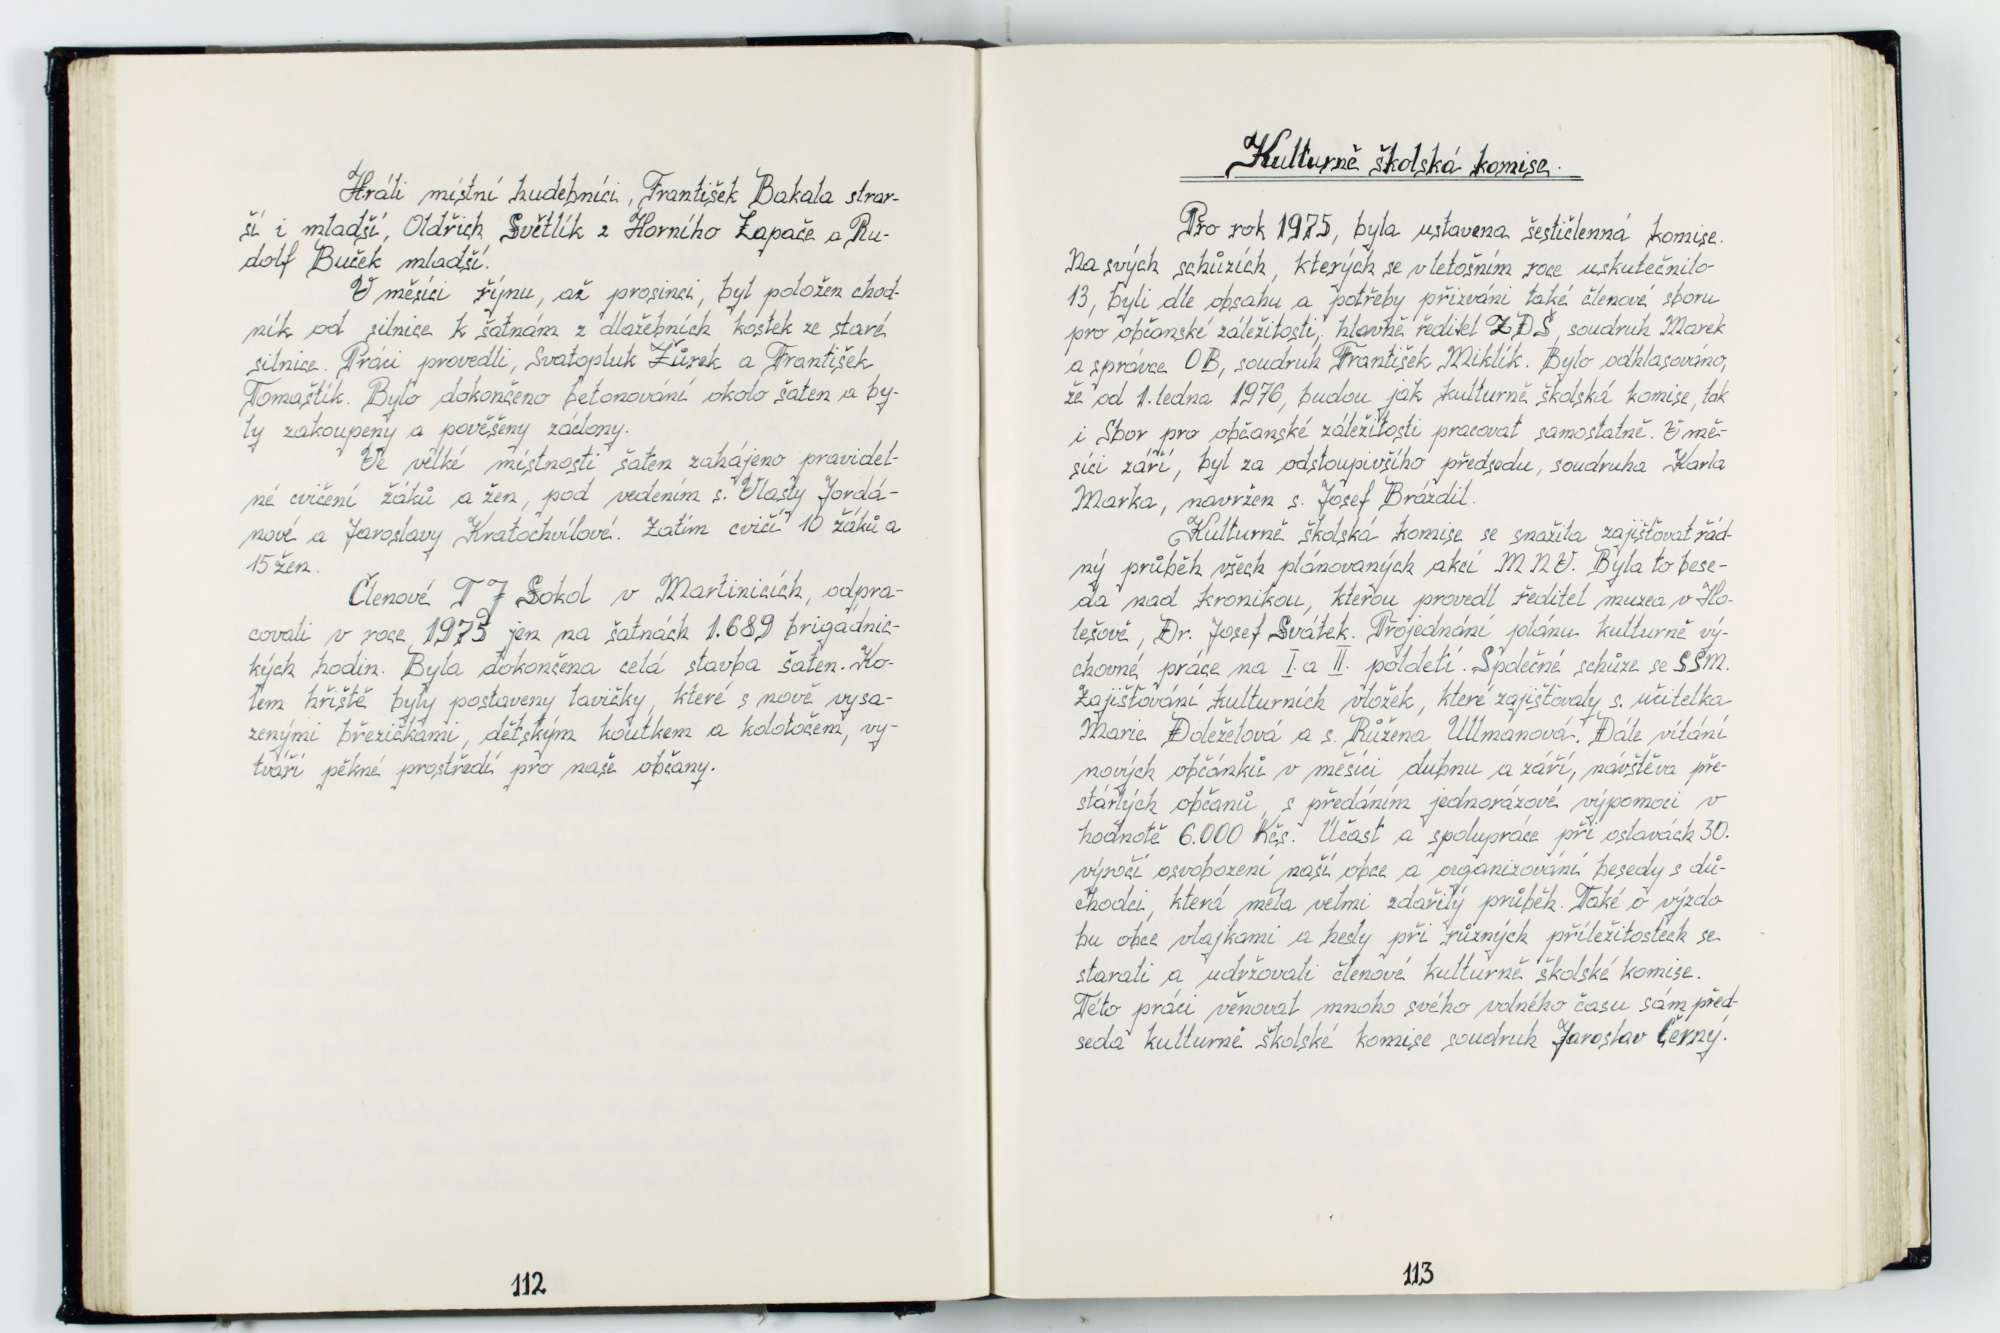 Hráli místní hudebníci, František Bakala strar-
ší i mladší, Oldřich Světlík z Horního Lapače a Ru-
dolf Buček mladší.
V měsíci říjnu, až prosinci, byl položen chod-
ník od silnice k šatnám z dlažebních kostek ze staré
silnice. Práci provedli, Svatopluk Žůrek a František
Tomaštík. Bylo dokončeno betonování okolo šaten a by-
ly zakoupeny a pověšeny záclony.
Ve velké místnosti šaten zahájeno pravidel-
né cvičení žáků a žen, pod vedením s. Vlasty Jordá-
nové a Jaroslavy Kratochvílové. Zatím cvičí 10 žáků a
15 žen.
Členové T J Sokol v Martinicích, odpra-
covali v roce 1975 jen na šatnách 1.689 brigádnic-
kých hodin. Byla dokončena celá stavba šaten. Ko-
lem hřiště byly postaveny lavičky, které s nově vysa-
zenými březičkami, dětským koutkem a kolotočem, vy-
tváří pěkné prostředí pro naše občany.
112
Kulturně školská komise.
Pro rok 1975, byla ustavena šestičlenná komise.
Na svých schůzích, kterých se v letošním roce uskutečnilo
13, byli dle obsahu a potřeby přizváni také členové sboru
pro občanské záležitosti, hlavně ředitel ZDŠ, soudruh Marek
a správce OB, soudruh František Miklík. Bylo odhlasováno,
že od 1. ledna 1976, budou jak kulturně školská komise, tak
i Sbor pro občanské záležitosti pracovat samostatně. V mě-
síci září, byl za odstoupivšího předsedu, soudruha Karla
Marka, navržen s. Josef Brázdil.
Kulturně školská komise se snažila zajišťovat řád-
ný průběh všech plánovaných akcí M N V. Byla to bese-
da nad kronikou, kterou provedl ředitel muzea v Ho-
lešově, Dr. Josef Svátek. Projednání plánu kulturně vý-
chovné práce na I. a II. pololetí. Společné schůze se SSM.
Zajišťování kulturních vložek, které zajišťovaly s. učitelka
Marie Doleželová a s. Růžena Ullmanová. Dále vítání
nových občánků v měsíci dubnu a září, návštěva pře-
stárlých občanů, s předáním jednorázové výpomoci v
hodnotě 6.000 Kčs. Účast a spolupráce při oslavách 30.
výročí osvobození naší obce a organizování besedy s dů-
chodci, která měla velmi zdařilý průběh. Také o výzdo
bu obce vlajkami a hesly při různých příležitostech se
starali a udržovali členové kulturně školské komise.
Této práci věnoval mnoho svého volného času sám před-
seda kulturně školské komise soudruh Jaroslav Černý.
113